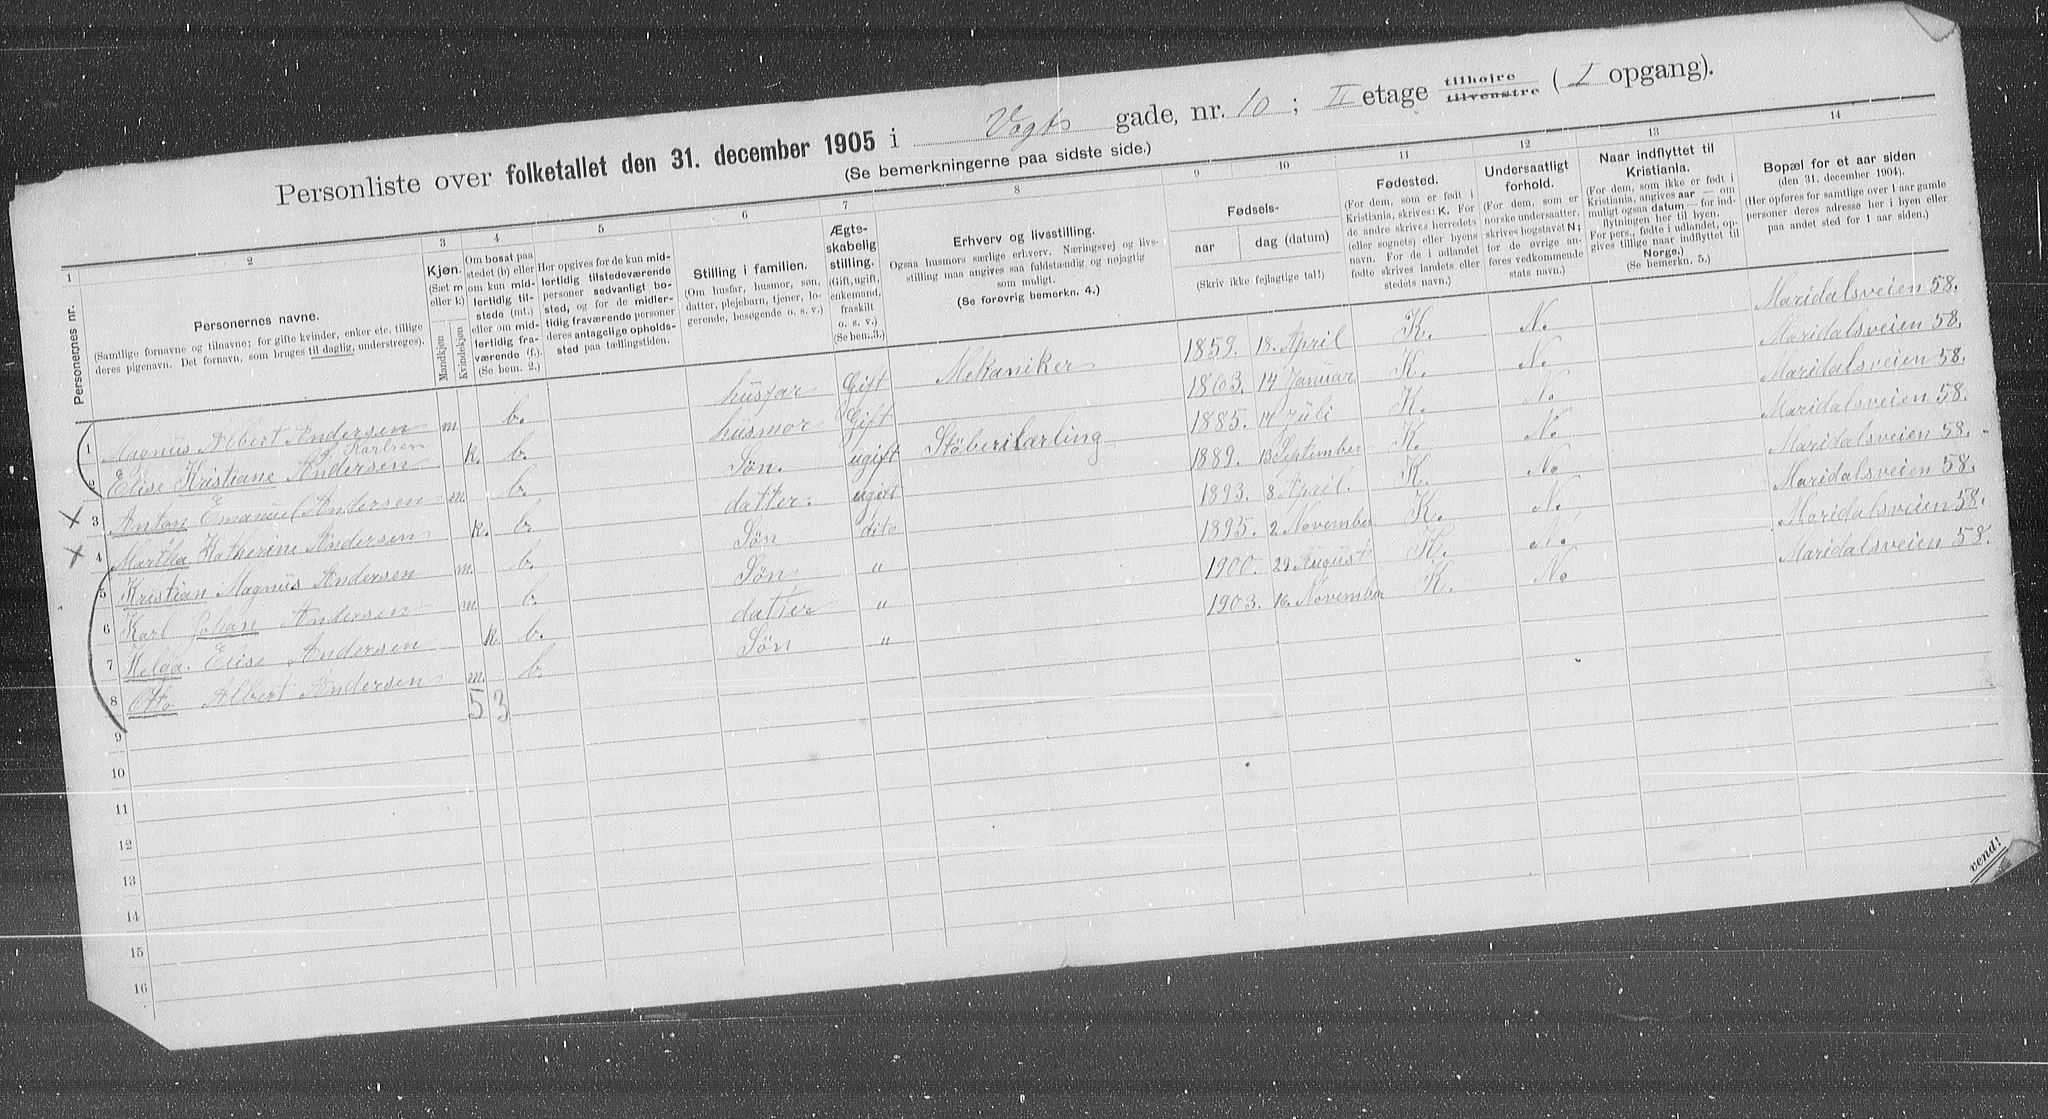 Personliste over folketallet den 31. december 1905 i Vogts gade, nr. 10; II etage tilhøire tilvenstre ( I opgang).
(Se bemerkningerne paa sidste side.)
1 2 3 4 5 6 7 8 9 10 11 12 13 14
Personernes nr.
Personernes navne.
(Samtlige fornavne og tilnavne; for gifte kvinder, enker etc. tillige
deres pigenavn. Det fornavn, som bruges til daglig, understreges).
Kjøn.
(Sæt m
eller k)
Mandkjøn
Kvindekjøn
Om bosat paa
stedet (b) eller
om kun mid-
lertidig til-
stede (mt.)
eller om mid-
lertidig fra-
værende (f.)
(Se bem. 2.)
Her opgives for de kun mid-
lertidig tilstedeværende
personer sedvanligt bo-
sted, og for de midler-
tidig fraværende personer
deres antagelige opholds-
sted paa tællingstiden.
Stilling i familien.
(Om husfar, husmor, søn,
datter, plejebarn, tjener, lo-
gerende, besøgende o. s. v.)
Ægte-
skabelig
stilling.
(Gift, ugift,
enkemand,
fraskilt
o. s. v.)
(Se bem. 3.)
Erhverv og livsstilling.
Ogsaa husmors særlige erhverv. Næringsvej og livs-
stilling maa angives saa fuldstændig og nøjagtig
som muligt.
(Se forøvrig bemerkn. 4.)
Fødsels-
aar
dag (datum)
(Skriv ikke fejlagtige tal!)
Fødested.
(For dem, som er født i
Kristiania, skrives: K. For
de andre skrives herredets
(eller sognets) eller byens
navn. For de i udlandet
fødte skrives landets eller
stedets navn.)
Undersaatligt
forhold.
(For dem, som er
norske undersaatter,
skrives bogstavet N;
for de øvrige an-
føres vedkommende
stats navn.)
Naar indflyttet til
Kristiania.
(For dem, som ikke er født i
Kristiania, angives aar — om
muligt ogsaa datum — for ind-
flytningen her til byen.
For pers., fødte i udlandet, op-
gives tillige naar indflyttet til
Norge.)
(Se bemerkn. 5.)
Bopæl for et aar siden
(den 31. december 1904).
(Her opføres for samtlige over 1 aar gamle
personer deres adresse her i byen eller
paa andet sted for 1 aar siden.)
1 Magnus Albert Andersen m b. husfar Gift Mekaniker 1859. 18. April K. N. Maridalsveien 58.
f. Karlsen
2 Elise Kristiane Andersen k. b. husmor Gift 1863. 14 Januar K. N. Maridalsveien 58.
3 Anton Emanuel Andersen m. b. Søn. ugift Støberilærling 1885. 17 Juli K. N. Maridalsveien 58.
4 Martha Katherine Andersen k. b. datter. ugift 1889. 13 September K. N. Maridalsveien 58.
5 Kristian Magnus Andersen m. b. Søn dito 1893. 8 April. K. N. Maridalsveien 58.
6 Karl Johan Andersen m. b. Søn " 1895. 2 November K. N. Maridalsveien 58.
7 Helga Elise Andersen k. b. datter " 1900. 29 August K. N. Maridalsveien 58.
8 Otto Albert Andersen m. b. Søn " 1903. 16. November K. N. Maridalsveien 58.
5 3
9
10
11
12
13
14
15
16
vend!